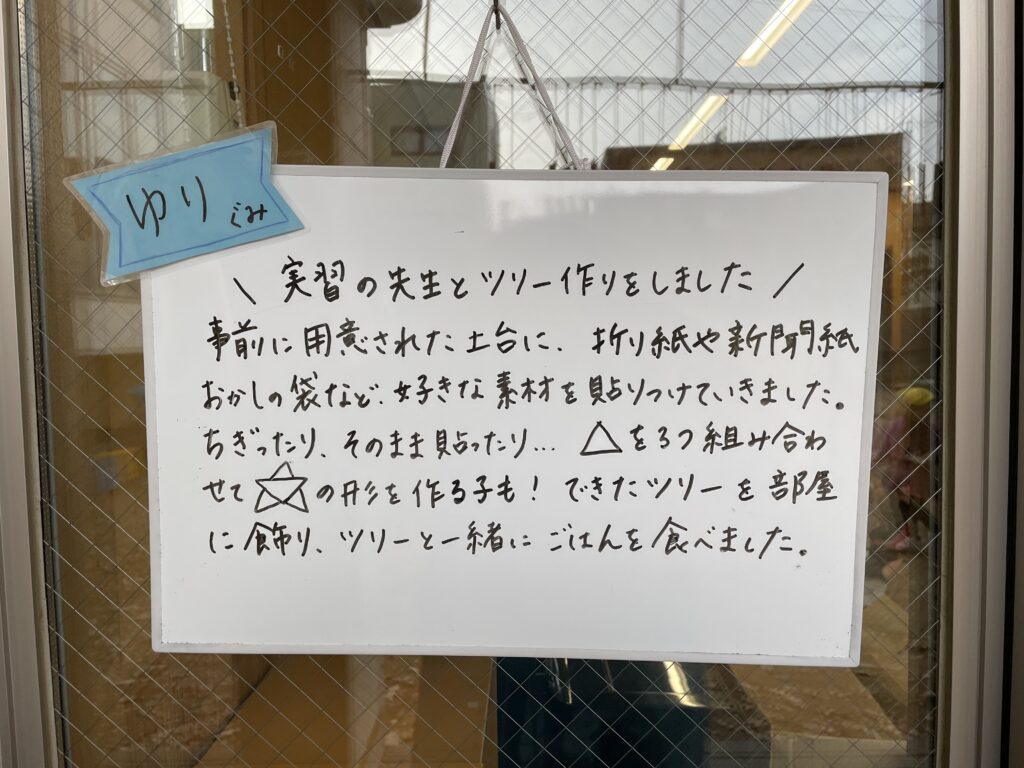 ゆり ぐみ
\ 実習の先生とツリー作りをしました /
事前に用意された土台に、折り紙や新聞紙
おかしの袋など、好きな素材を貼りつけていきました。
ちぎったり、そのまま貼ったり… △を3つ組み合わ
せて☆の形を作る子も! できたツリーを部屋
に飾り、ツリーと一緒にごはんを食べました。